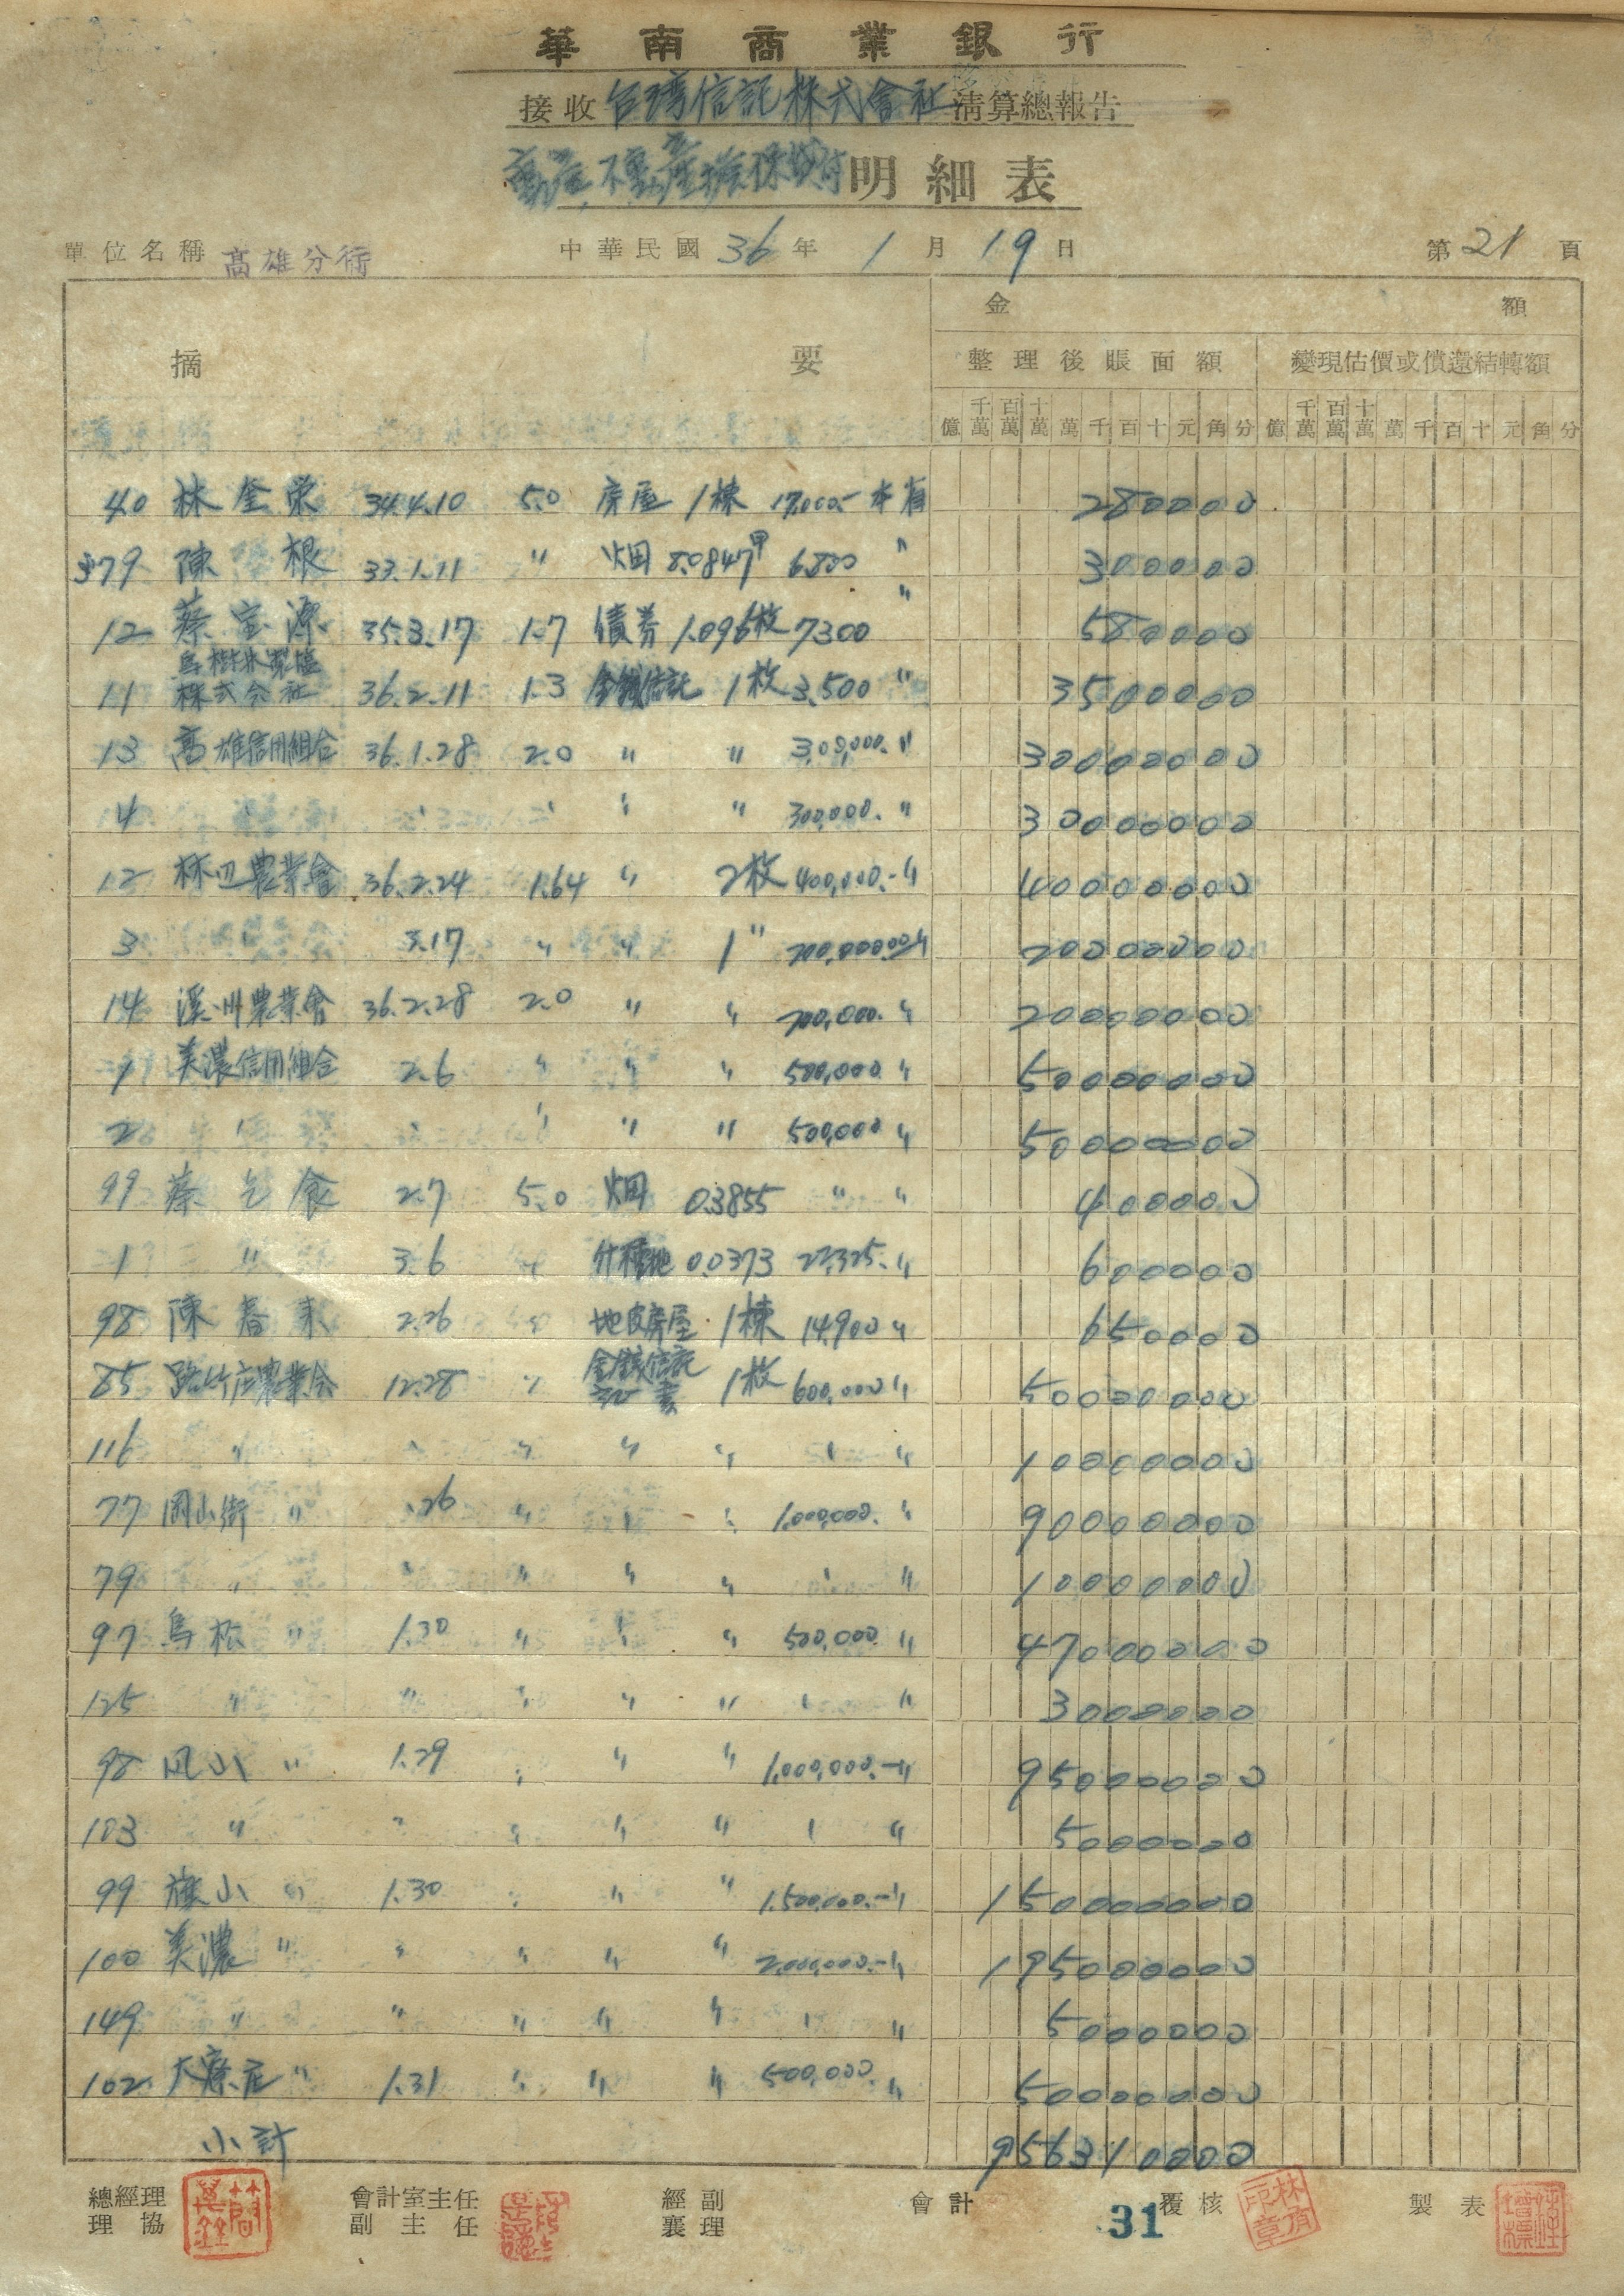 華南商業銀行
接收台湾信託株式會社清算總報告
動産,不動産擔保貸付明細表
單位名稱 高雄分行 中華民國36年1月19日 第21頁
摘要 金額
整理後賬面額 變現估價或償還結轉額
億 千萬 百萬 十萬 萬 千 百 十 元 角 分 億 千萬 百萬 十萬 萬 千 百 十 元 角 分
40 林金栄 34.4.10 5.0 房屋 1棟 17,000.- 本有 280000
379 陳根 33.1.11 〃 畑 8.0847甲 6.800 〃 300000
12 蔡宝源 35.3.17 1.7 債券 1.096枚 7300 〃 580000
11 烏樹林製塩株式会社 36.2.11 1.3 金銭信託 1枚 3.500 〃 3500000
13 高雄信用組合 36.1.28 2.0 〃 〃 300,000. 〃 30000000
4 〃 〃 〃 300,000. 〃 30000000
12 林辺農業會 36.2.24 1.64 〃 2枚 400,000.- 〃 40000000
3 3.17 〃 〃 1〃 200,000.00 〃 20000000
14 溪州農業會 36.2.28 2.0 〃 〃 200,000. 〃 20000000
1 美濃信用組合 2.6 〃 〃 〃 500,000 〃 50000000
2 〃 〃 〃 500,000 〃 50000000
99 蔡乞食 2.7 5.0 畑 0.3855 〃 〃 400000
1 〃 3.6 〃 什種地 0.0373 22,325. 〃 600000
98 陳春来 2.26 地皮房屋 1棟 14,900 〃 650000
85 路竹庄農業会 12.28 〃 金銭信託証書 1枚 600,000 〃 50000000
116 〃 〃 〃 〃 〃 〃 〃 10000000
77 岡山街 〃 .26 〃 〃 〃 1,000,000. 〃 90000000
79 〃 〃 〃 〃 〃 〃 〃 10000000
97 鳥松 〃 1.30 〃 〃 〃 500,000 〃 47000000
125 〃 〃 〃 〃 〃 〃 〃 3000000
98 凤山 〃 1.29 〃 〃 〃 1,000,000.- 〃 95000000
103 〃 〃 〃 〃 〃 〃 〃 5000000
99 旗山 〃 1.30 〃 〃 〃 1,500,000.- 〃 150000000
100 美濃 〃 〃 〃 〃 〃 2,000,000.- 〃 195000000
149 〃 〃 〃 〃 〃 〃 〃 5000000
102 大寮庄 〃 1.31 〃 〃 〃 500,000. 〃 50000000
小計 956310000
總經理 會計室主任 經副 會計 覆核 製表
理協 副主任 襄理
31
林有印章